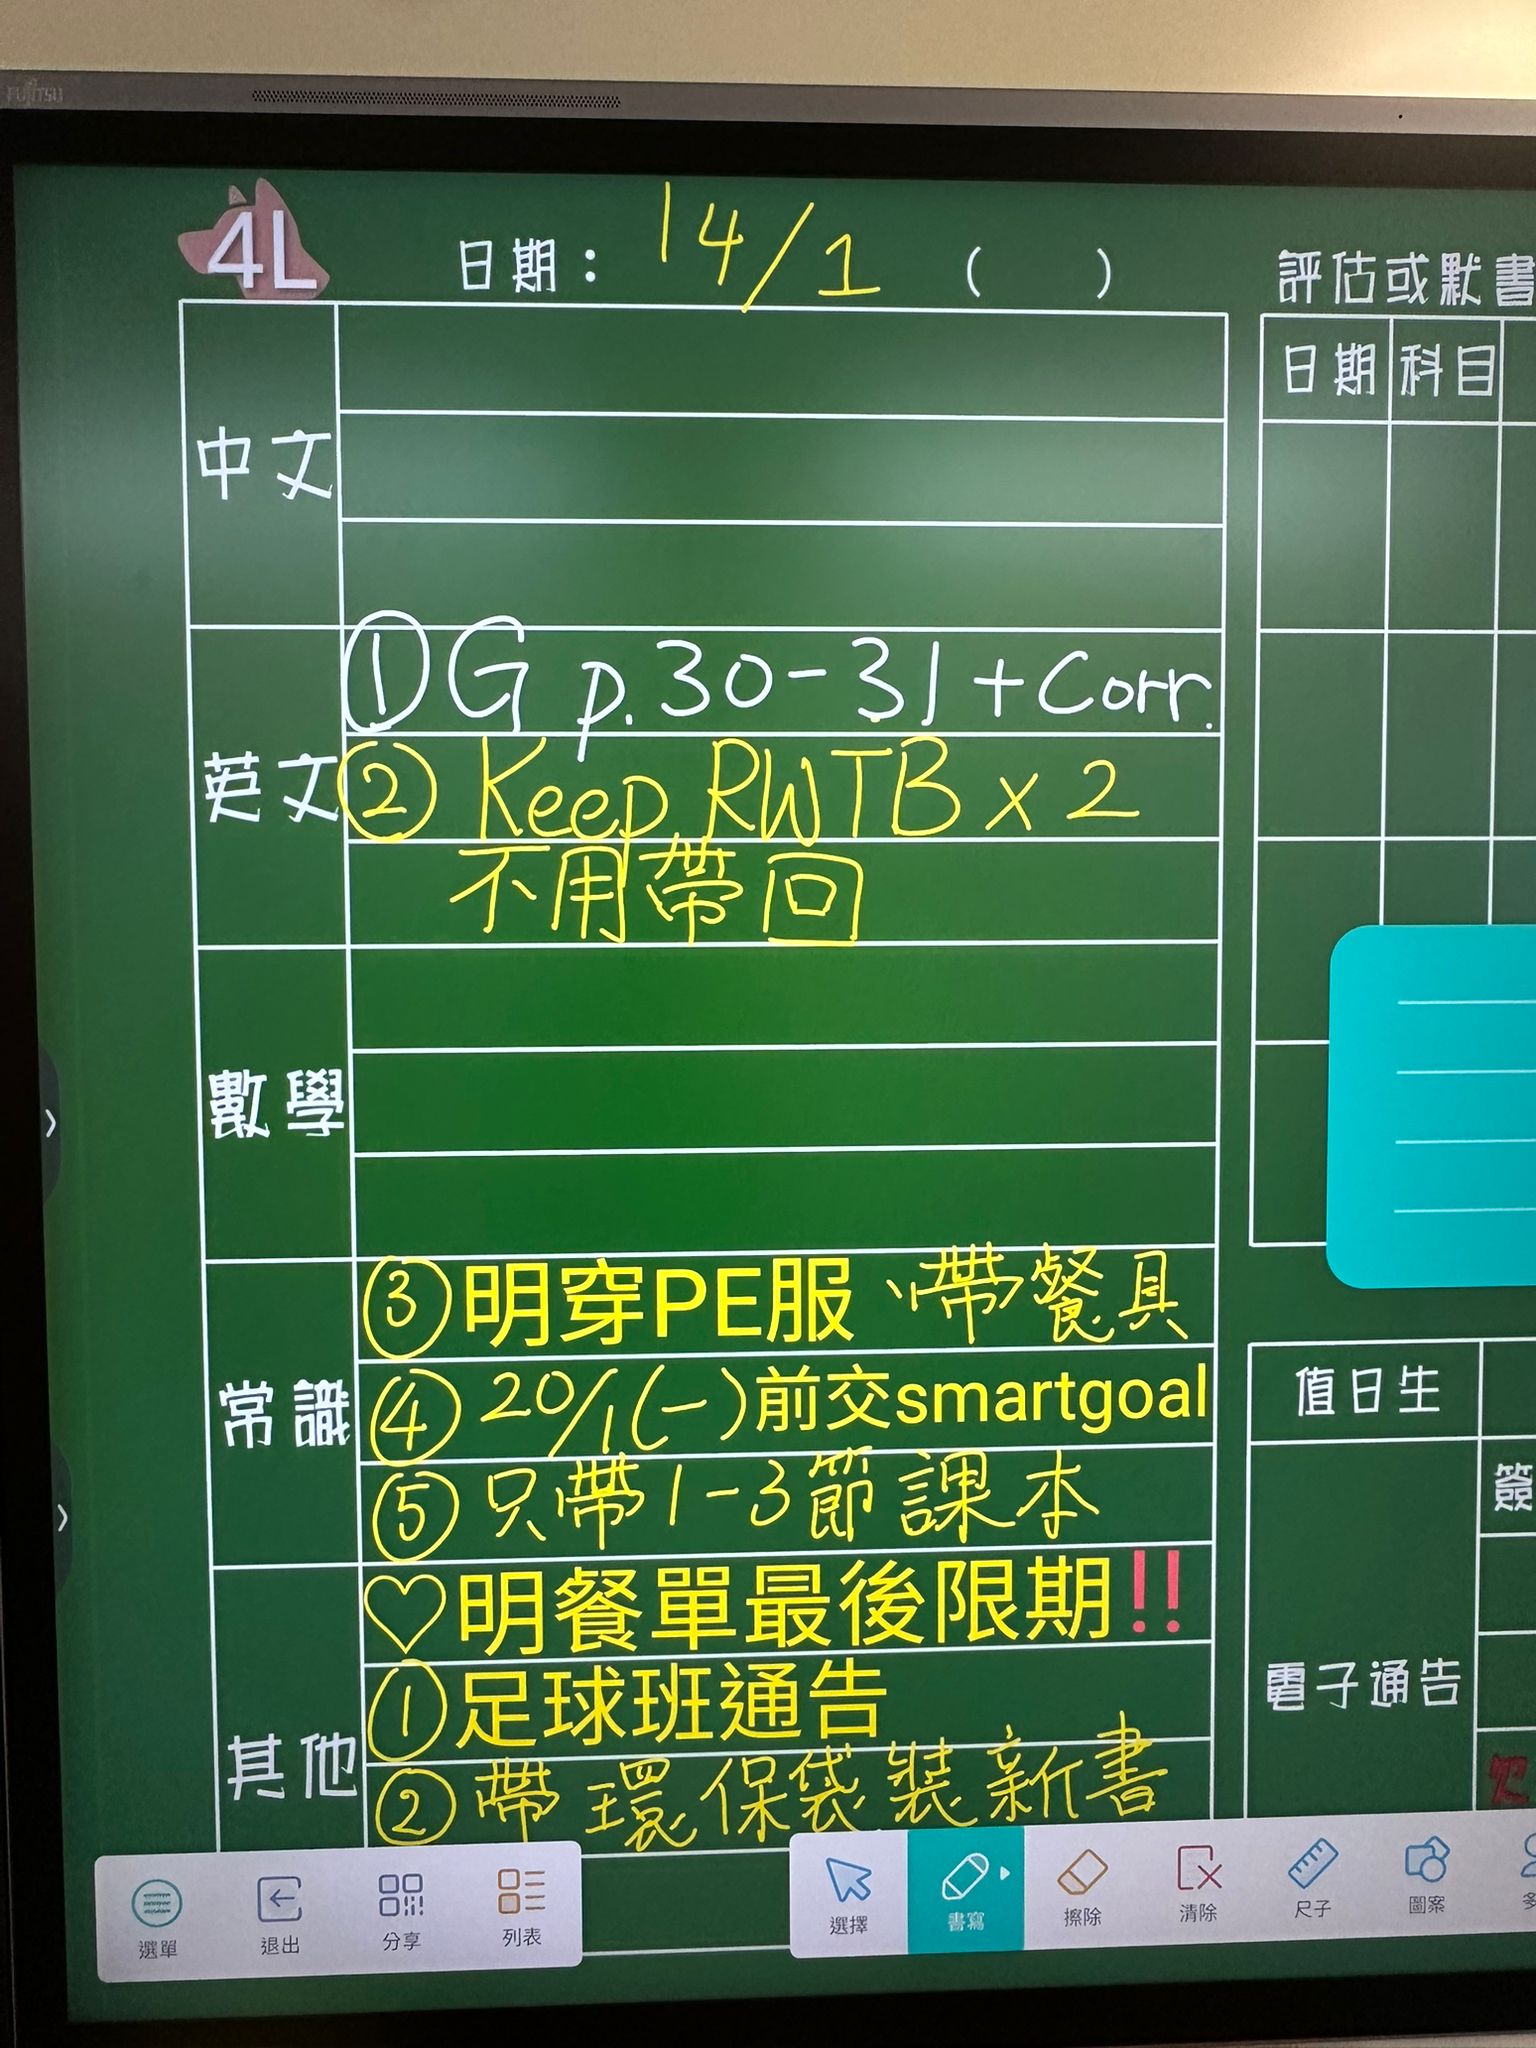 FUJITSU
4L
日期：14/1 （ ）
中文
英文
①G p.30-31+Corr.
② Keep RWTB x 2
不用帶回
數學
常識
③明穿PE服、帶餐具
④20/1(一)前交smartgoal
⑤只帶1-3節課本
其他
♡明餐單最後限期‼
①足球班通告
②帶環保袋裝新書
評估或默書
日期 科目
值日生
簽
電子通告
選單 退出 分享 列表
選擇 書寫 擦除 清除 尺子 圖案 多